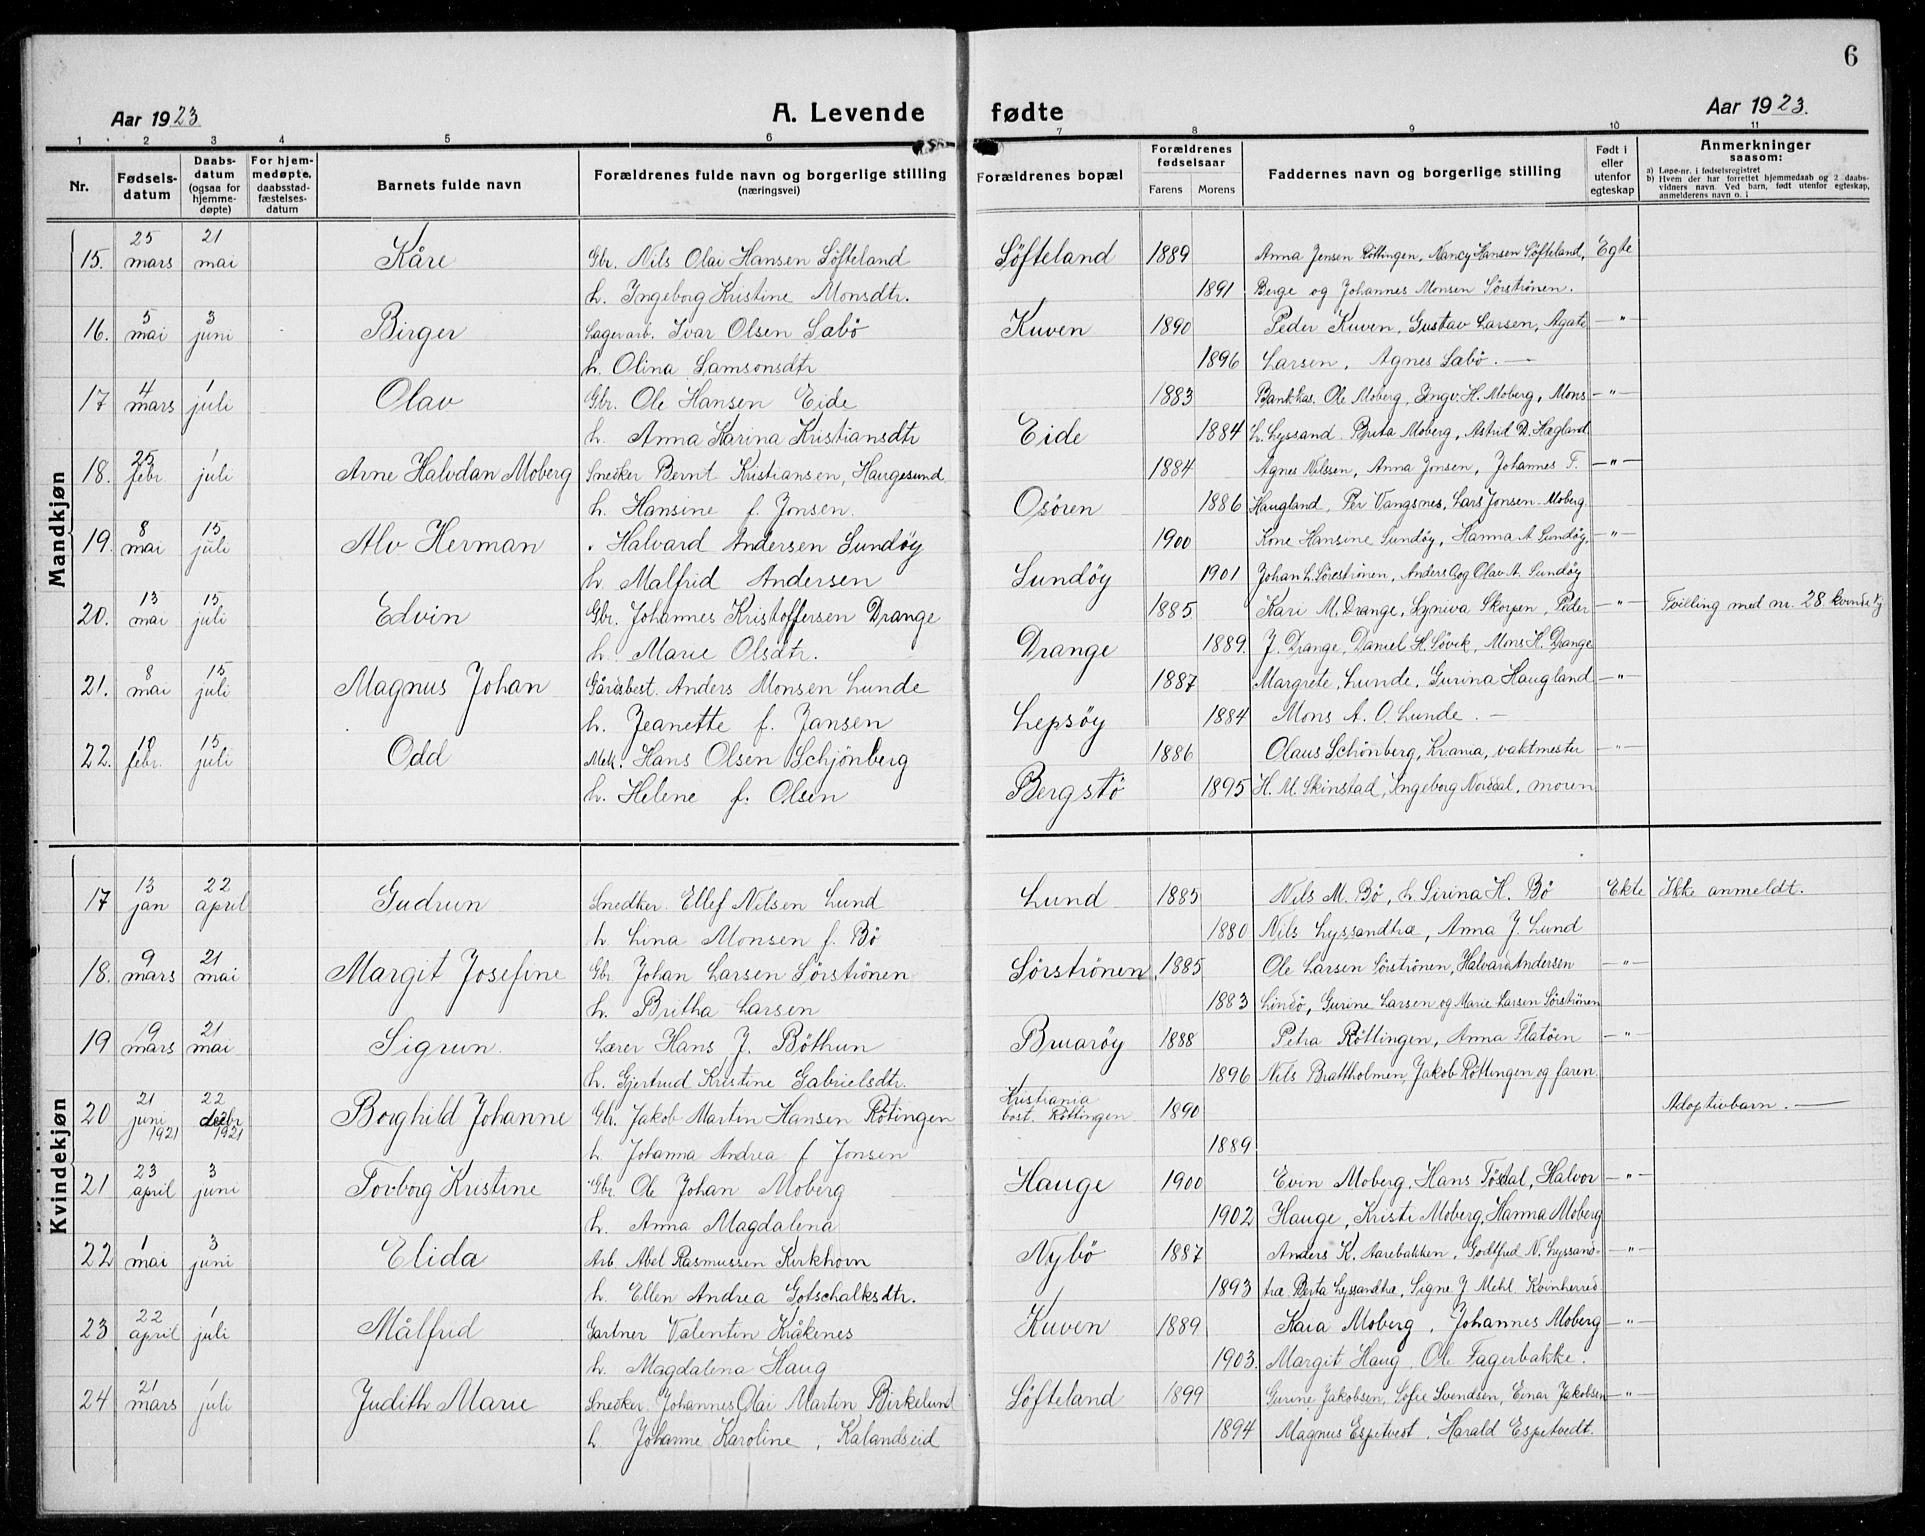 6
Aar 1923 A. Levende fødte Aar 1923.
1 2 3 4 5 6 7 8 9 10 11
Nr. Fødsels-datum Daabs-datum (ogsaa for hjemme-døpte) For hjem-medøpte, daabsstad-fæstelses-datum Barnets fulde navn Forældrenes fulde navn og borgerlige stilling (næringsvei) Forældrenes bopæl Forældrenes fødselsaar Farens Morens Faddernes navn og borgerlige stilling Født i eller utenfor egteskap Anmerkninger saasom: a) Løpe-nr. i fødselsregistret b) Hvem der har forrettet hjemmedaab og 2 daabs-vidners navn. Ved barn, født utenfor egteskap, anmelderens navn o. l
Mandkjøn
15. 25 mars 21 mai Kåre Gbr. Nils Olai Hansen Söfteland Söfteland 1889 Anna Jensen Röttingen, Nancy Hansen Söfteland, Egte
h. Ingeborg Kristine Monsdtr. 1891 Berge og Johannes Monsen Sörströnen.
16. 5 mai 3 juni Birger Lagerarb. Ivar Olsen Sabö Kuven 1890 Peder Kuven, Gustav Larsen, Agate —"—
h. Olina Samsonsdtr 1896 Larsen, Agnes Sabö. —
17 4 mars 1 juli Olav Gbr. Ole Hansen Eide 1883 Bank.kas. Ole Moberg, Ingv. H. Moberg, Mons —"—
h. Anna Karina Kristiansdtr Eide 1884 L. Lyssand. Brita Moberg, Astrid D. Hægland
18. 25 febr. 1 juli Arne Halvdan Moberg Snedker Bernt Kristiansen, Haugesund 1884 Agnes Nilssen, Anna Jonsen, Johannes T. —"—
h. Hansine f. Jonsen. Osören 1886 Haugland, Per Vangsnes, Lars Jonsen Moberg.
19. 8 mai 15 juli Alv Herman Halvard Andersen Sundöy 1900 Kone Hansine Sundöy, Hanna A Sundöy, —"—
h. Malfrid Andersen Sundöy 1901 Johan L. Sörestrønen, Anders O og Olav A. Sundöy
20. 13 mai 15 juli Edvin Gbr. Johannes Kristoffersen Drange 1885 Kari M. Drange, Syniva Skorpen, Peder —"— Tvilling med nr. 28 kvindekj
h. Marie Olsdtr. Drange 1889. J. Drange, Daniel H. Sövik, Mons H. Drange
21. 8 mai 15 juli Magnus Johan Gårdsbest. Anders Monsen Lunde 1887 Margrete Lunde, Gurina Haugland —"—
h. Jeanette f. Jansen Lepsöy 1884 Mons A. O. Lunde. —
22. 10 febr. 15 juli Odd Mek. Hans Olsen Schjönberg 1886 Olaus Schönberg, Krania, vaktmester —"—
h. Helene f. Olsen Bergstö 1895 H. M. Skinstad, Ingeborg Norddal, moren
Kvindekjøn
17 13 jan 22 april Gudrun Snedker Ellef Nilsen Lund Lund 1885 Nils M. Bö, h Sirina H. Bö Ekte Ikke anmeldt.
h Lina Monsen f. Bö 1880 Nils Lyssandtræ, Anna J. Lund
18. 9 mars 21 mai Margit Josefine Gbr. Johan Larsen Sörströnen Sörströnen 1885 Ole Larsen Sörströnen, Halvard Andersen —"—
h. Britha Larsen 1883 Lindö, Gurine Larsen og Marie Larsen Sörströnen
19 9 mars 21 mai Sigrun. Lærer Hans J. Böthun Bruaröy 1888 Petra Röttingen, Anna Flatöen —"—
h. Gjertrud Kristine Gabrielsdtr. 1896 Nils Brattholmen, Jakob Röttingen og faren.
20 21 juni 1921 22 decbr 1921 Borghild Johanne Gbr. Jakob Martin Hansen Rötingen Kristiania bost. Röttingen 1890 Adoptivbarn. —
h. Johanna Andrea f Jonsen 1889
21 23 april 3 juni Torborg Kristine Gbr. Ole Johan Moberg Hauge 1900 Evin Moberg, Hans Tösdal, Halvor —"—
h. Anna Magdalena 1902 Hauge, Kristi Moberg, Hanna Moberg
22 1 mai 3 juni Elida Arb. Abel Rasmussen Kirkhovn Nybö 1887 Anders K. Aarebakken, Godtfred N. Lyssand- —"—
h. Ellen Andrea Gotschalksdtr. 1893 træ Berta Lyssandtræ, Signe J Mehl Kvinherred
23 22 april 1 juli Målfrid Gartner Valentin Kråkenes Kuven 1889 Kaia Moberg, Johannes Moberg —"—
h. Magdalena Haug 1903. Margit Haug, Ole Fagerbakke.
24 21 mars 1 juli Judith Marie Snedker. Johannes Olai Martin Birkelund Söfteland 1899 Gurine Jakobsen, Sofie Svendsen, Einar Jakobsen —"—
h. Johanne Karoline, Kalandseid 1894 Magnus Espetvedt, Harald Espetvedt.